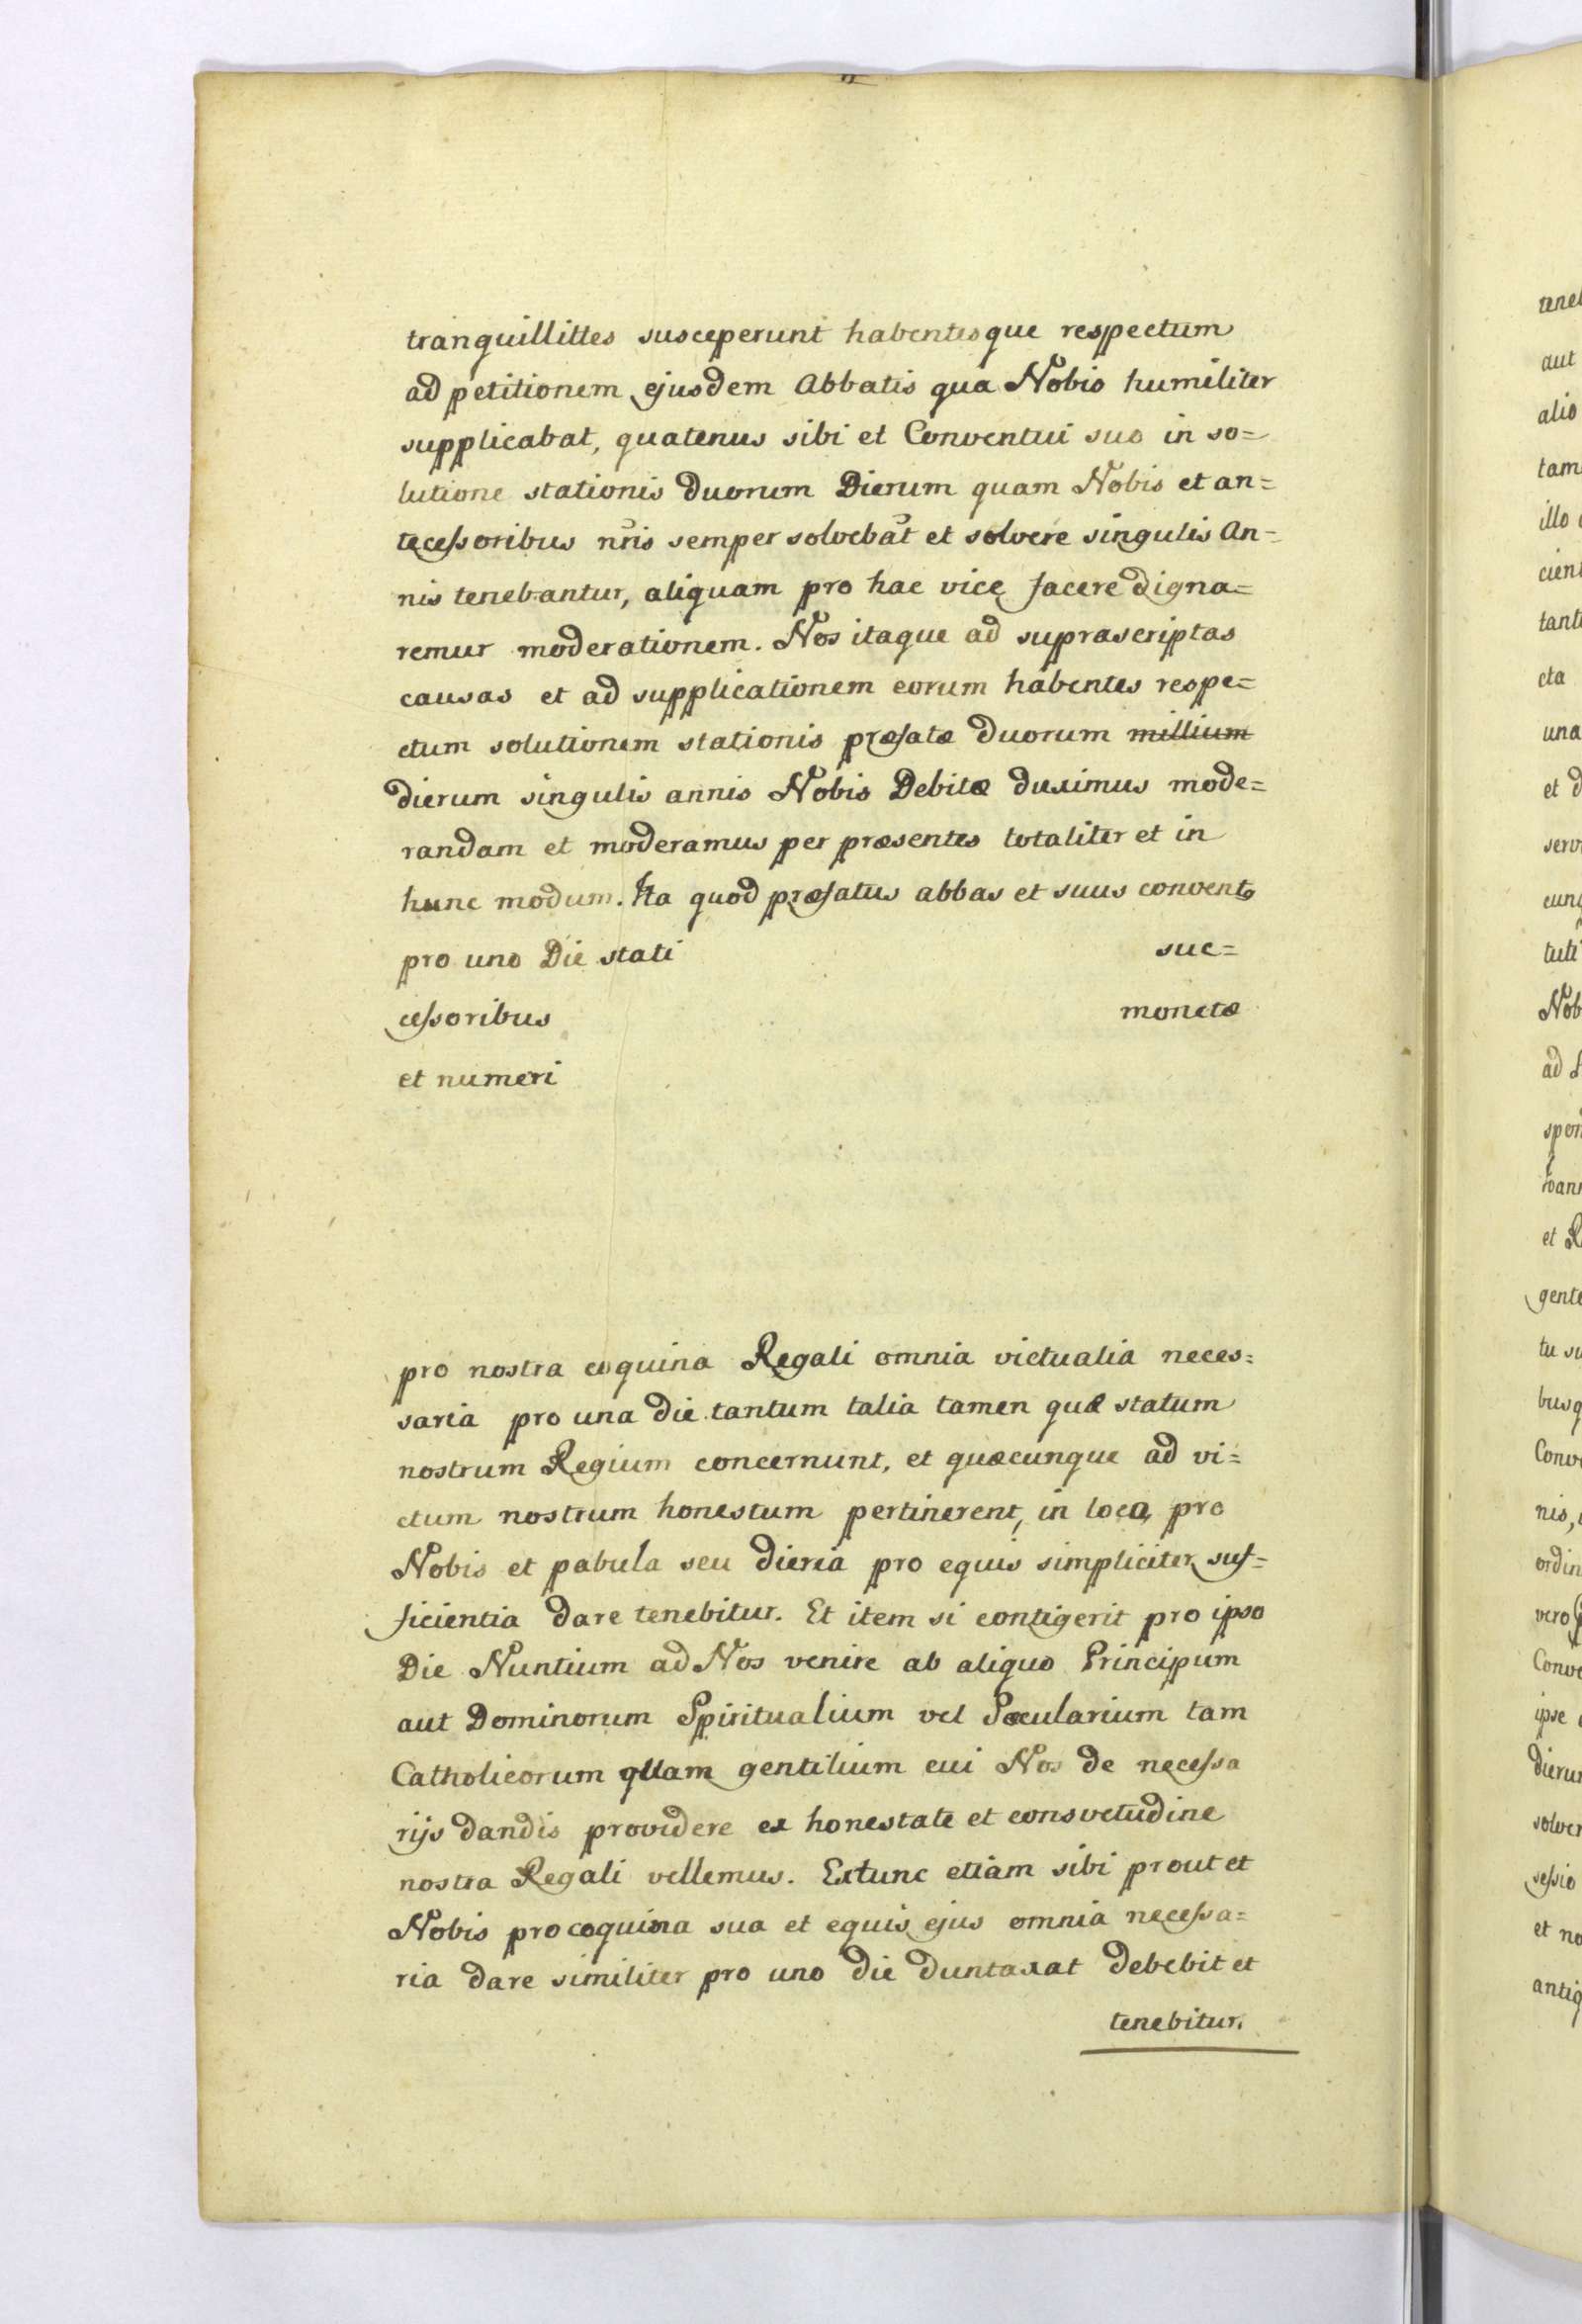 tranquillittes susceperunt habentesque respectum
ad petitionem ejusdem Abbatis qua Nobis humiliter
supplicabat, quatenus sibi et Conventui suo in so=
lutione stationis duorum Dierum quam Nobis et an=
tecessoribus nr̃is semper solvebat et solvere singulis An=
nis tenebantur, aliquam pro hac vice facere digna=
remur moderationem. Nos itaque ad suprascriptas
causas et ad supplicationem eorum habentes respe=
ctum solutionem stationis præfatæ duorum millium
dierum singulis annis Nobis Debitæ duximus mode=
randam et moderamus per præsentes totaliter et in
hunc modum. Ita quod præfatus abbas et suus convent9
pro uno Die stati suc=
cessoribus monetæ
et numeri
pro nostra coquina Regali omnia victualia neces=
saria pro una die tantum talia tamen quæ statum
nostrum Regium concernunt, et quæcunque ad vi=
ctum nostrum honestum pertinerent, in loca pro
Nobis et pabula seu dieria pro equis simpliciter suf=
ficientia dare tenebitur. Et item si contigerit pro ipso
Die Nuntium ad Nos venire ab aliquo Principum
aut Dominorum Spiritualium vel Sæcularium tam
Catholicorum quam gentilium cui Nos de necessa
rijs dandis providere ex honestate et consvetudine
nostra Regali vellemus. Extunc etiam sibi prout et
Nobis pro coquina sua et equis ejus omnia necessa=
ria dare similiter pro uno die duntaxat debebit et
tenebitur.